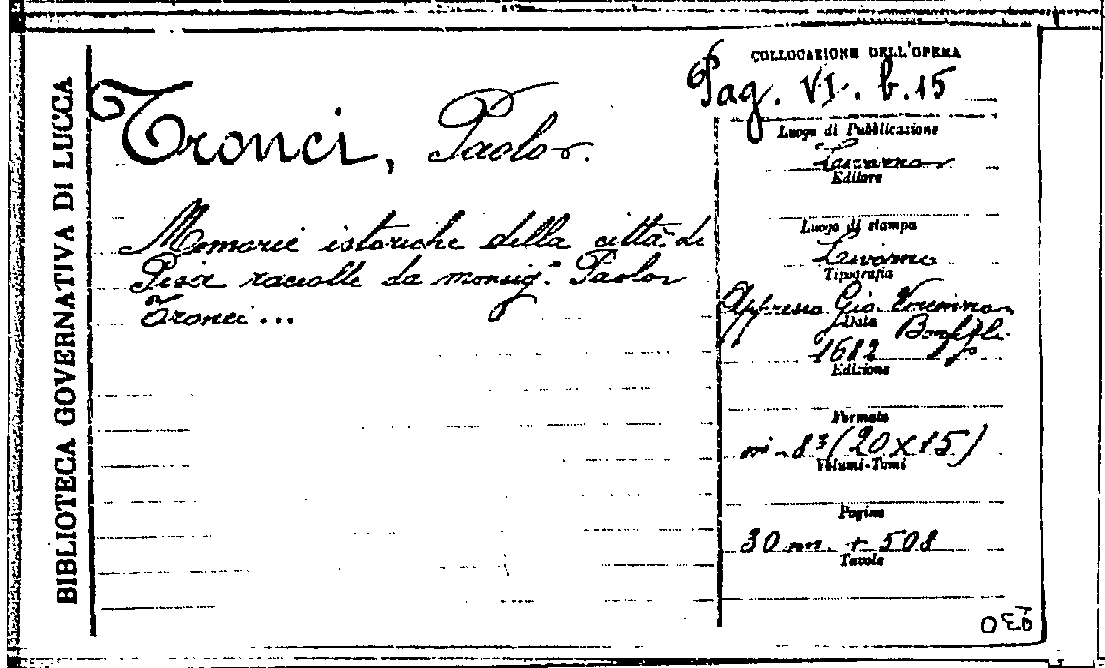 BIBLIOTECA GOVERNATIVA DI LUCCA
Tronci, Paolo.
Memorie istoriche della città di
Pisa raccolte da monsig.r Paolo
Tronci...
COLLOCAZIONE DELL'OPERA
Pag. VI. b.15
Luogo di Pubblicazione
Livorno
Editore
Luogo di stampa
Livorno
Tipografia
Appresso Gio. Vincenzo
Data
Bonfigli
1682
Edizione
Formato
in-8° (20x15)
Volumi-Tomi
Pagine
30 nn. + 508
Tavole